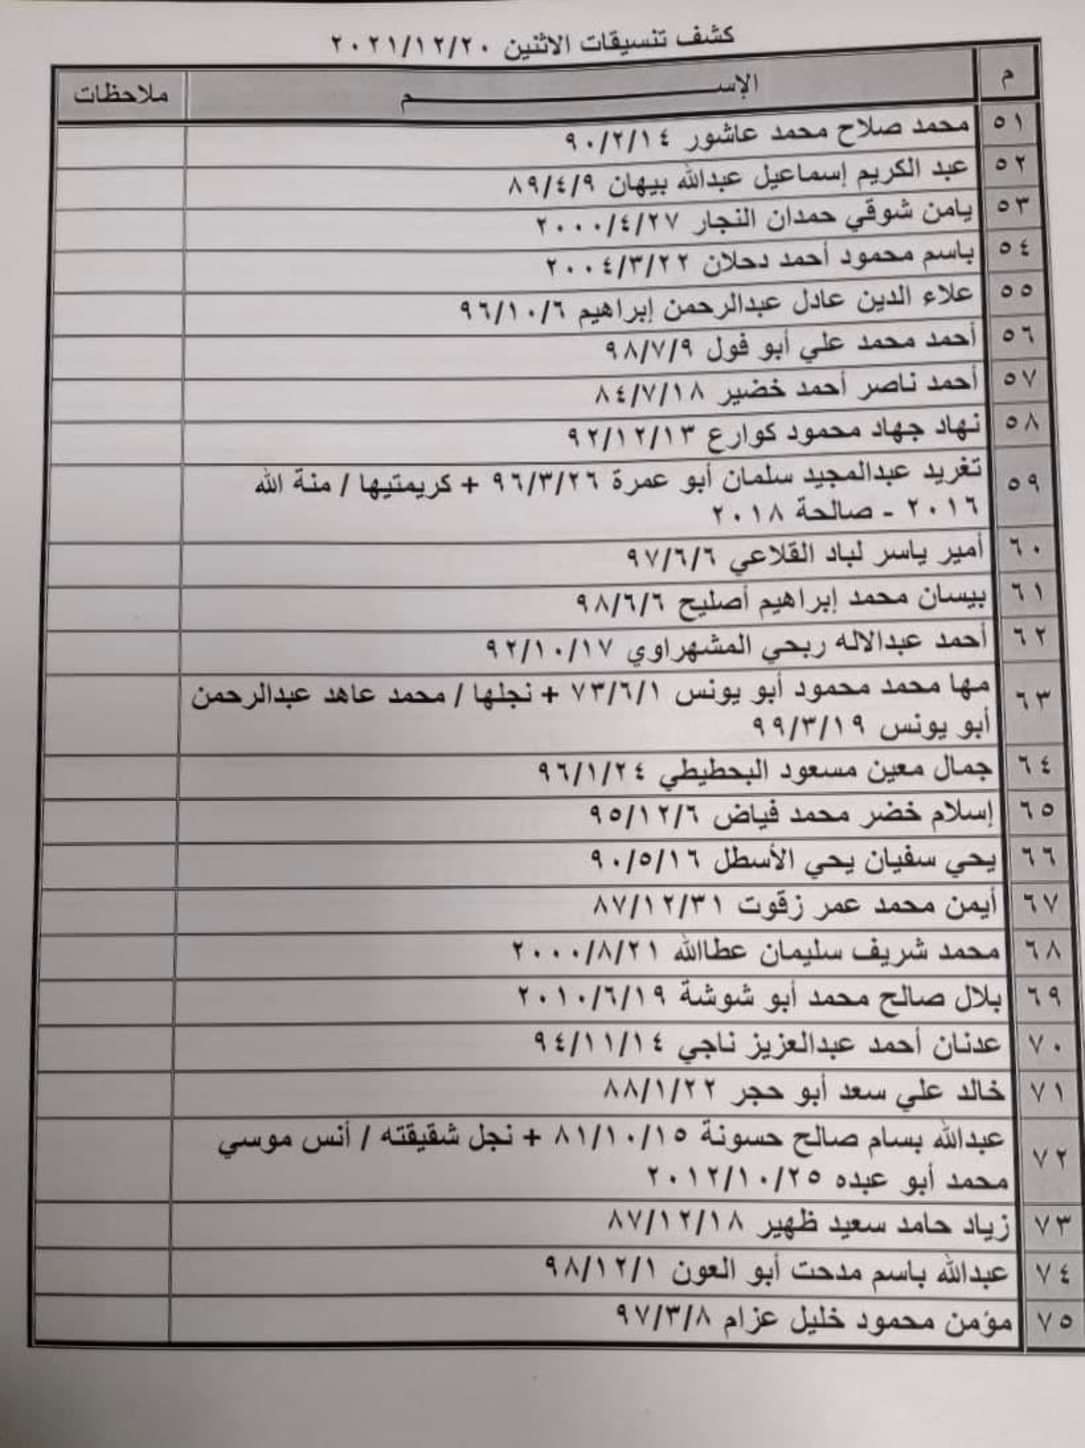 كشف تنسيقات الاثنين ٢٠٢١/١٢/٢٠
م الإســـــــــــــــــــــــــــــم ملاحظات
٥١ محمد صلاح محمد عاشور ٩٠/٢/١٤
٥٢ عبد الكريم إسماعيل عبدالله بيهان ٨٩/٤/٩
٥٣ يامن شوقي حمدان النجار ٢٠٠٠/٤/٢٧
٥٤ باسم محمود أحمد دحلان ٢٠٠٤/٣/٢٢
٥٥ علاء الدين عادل عبدالرحمن إبراهيم ٩٦/١٠/٦
٥٦ أحمد محمد علي أبو فول ٩٨/٧/٩
٥٧ أحمد ناصر أحمد خضير ٨٤/٧/١٨
٥٨ نهاد جهاد محمود كوارع ٩٢/١٢/١٣
٥٩ تغريد عبدالمجيد سلمان أبو عمرة ٩٦/٣/٢٦ + كريمتيها / منة الله
٢٠١٦ - صالحة ٢٠١٨
٦٠ أمير ياسر لباد القلاعي ٩٧/٦/٦
٦١ بيسان محمد إبراهيم أصليح ٩٨/٦/٦
٦٢ أحمد عبدالاله ربحي المشهراوي ٩٢/١٠/١٧
٦٣ مها محمد محمود أبو يونس ٧٣/٦/١ + نجلها / محمد عاهد عبدالرحمن
أبو يونس ٩٩/٣/١٩
٦٤ جمال معين مسعود البحطيطي ٩٦/١/٢٤
٦٥ إسلام خضر محمد فياض ٩٥/١٢/٦
٦٦ يحي سفيان يحي الأسطل ٩٠/٥/١٦
٦٧ أيمن محمد عمر زقوت ٨٧/١٢/٣١
٦٨ محمد شريف سليمان عطاالله ٢٠٠٠/٨/٢١
٦٩ بلال صالح محمد أبو شوشة ٢٠١٠/٦/١٩
٧٠ عدنان أحمد عبدالعزيز ناجي ٩٤/١١/١٤
٧١ خالد علي سعد أبو حجر ٨٨/١/٢٢
٧٢ عبدالله بسام صالح حسونة ٨١/١٠/١٥ + نجل شقيقته / أنس موسي
محمد أبو عبده ٢٠١٢/١٠/٢٥
٧٣ زياد حامد سعيد ظهير ٨٧/١٢/١٨
٧٤ عبدالله باسم مدحت أبو العون ٩٨/١٢/١
٧٥ مؤمن محمود خليل عزام ٩٧/٣/٨